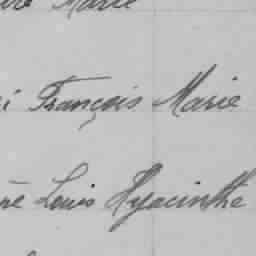 Marie
François Marie
Louis Hyacinthe